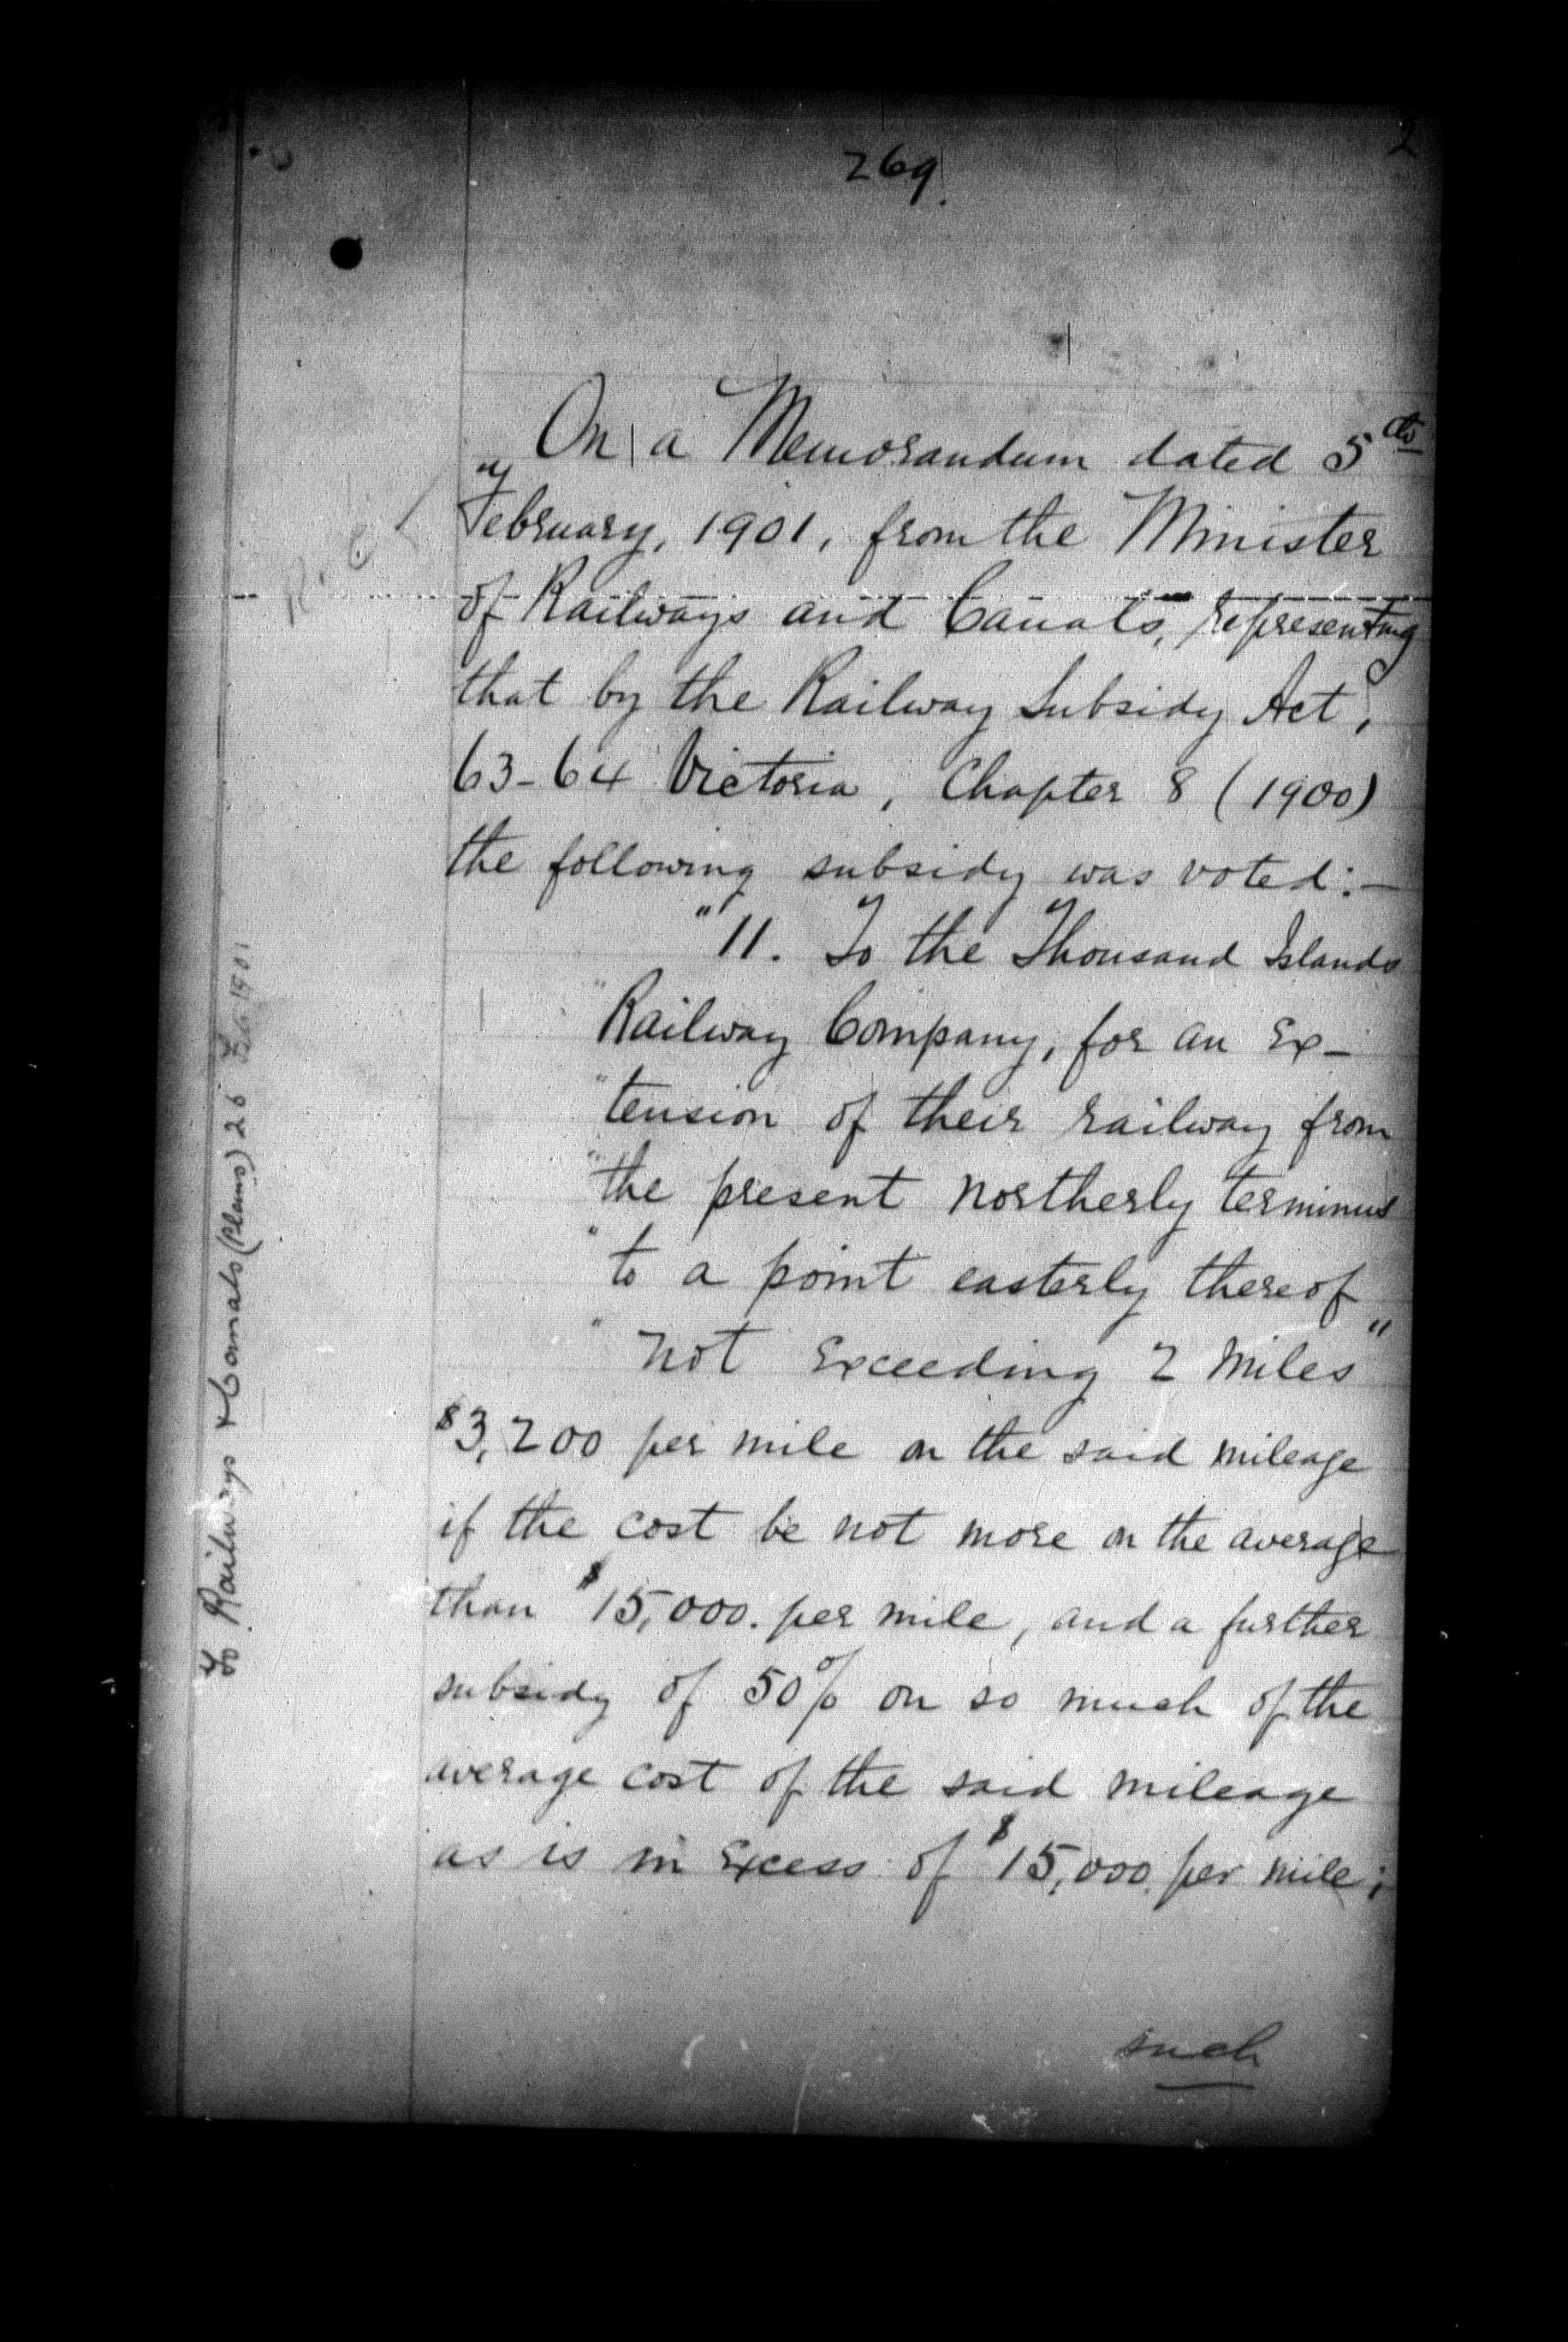 269.
2
On a Memorandum dated 5th
February, 1901, from the Minister
of Railways and Canals, representing
that by the Railway Subsidy Act,
63-64 Victoria, Chapter 8 (1900)
the following subsidy was voted:—
"11. To the Thousand Islands
"Railway Company, for an Ex-
"tension of their railway from
"the present northerly terminus
"to a point easterly thereof
"not Exceeding 2 miles"
$3,200 per mile on the said mileage
if the cost be not more on the average
than $15,000. per mile, and a further
subsidy of 50% on so much of the
average cost of the said mileage
as is in Excess of $15,000 per mile;
such
To Railways & Canals (Plans) 26 Feb 1901
R. C